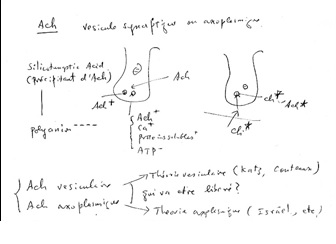 Ach vesicule synaptique ou axoplasmique
Silicotungstic Acid
(Précipitant d'Ach)
Ach
Ach+
polyanion ----
Ach+
Ca+
Proteins solubles+
ATP-
ch*
Ach*
ch*
Ach vesiculaire
Ach axoplasmique
Théorie vesiculaire (Katz, Couteaux)
qui va etre liberé?
Theorie axoplasmique (Israël, etc)